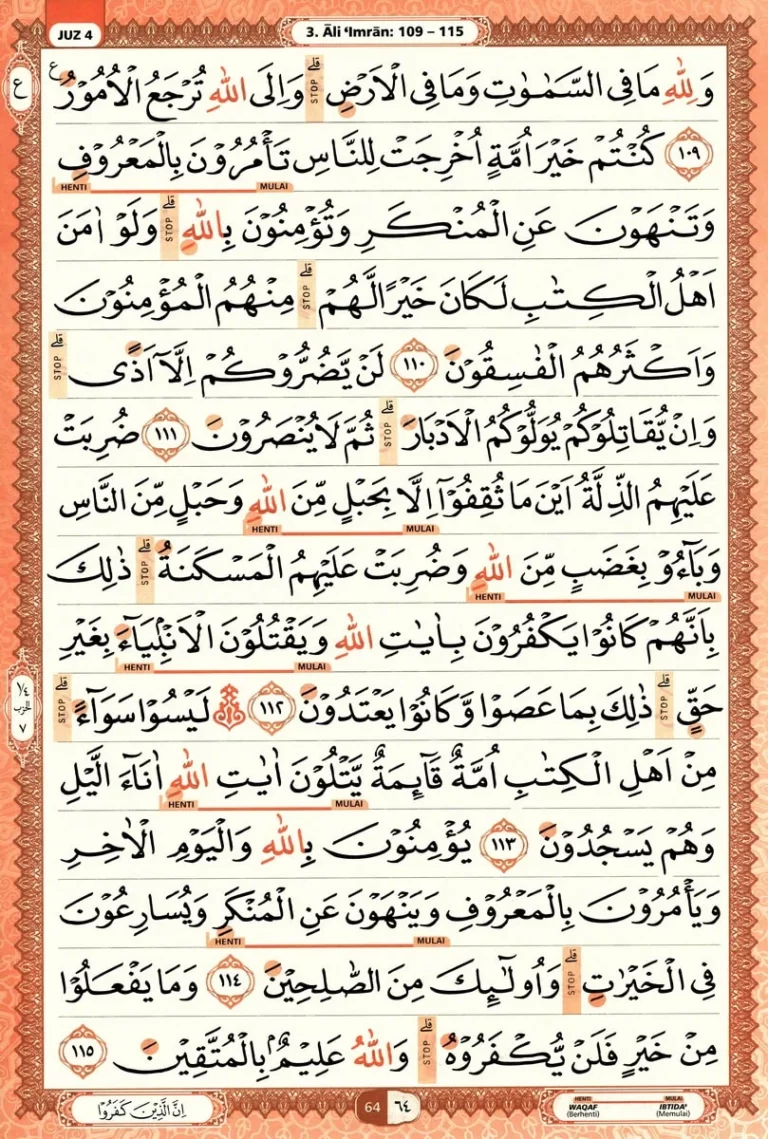 JUZ 4
3. Āli 'Imrān: 109 – 115
ع
وَلِلّٰهِ مَا فِى السَّمٰوٰتِ وَمَا فِى الْاَرْضِۗ وَاِلَى اللّٰهِ تُرْجَعُ الْاُمُوْرُ ࣖ
STOP
١٠٩ كُنْتُمْ خَيْرَ اُمَّةٍ اُخْرِجَتْ لِلنَّاسِ تَأْمُرُوْنَ بِالْمَعْرُوْفِ
MULAI HENTI
وَتَنْهَوْنَ عَنِ الْمُنْكَرِ وَتُؤْمِنُوْنَ بِاللّٰهِۗ وَلَوْ اٰمَنَ
STOP
اَهْلُ الْكِتٰبِ لَكَانَ خَيْرًا لَّهُمْۗ مِنْهُمُ الْمُؤْمِنُوْنَ
STOP
وَاَكْثَرُهُمُ الْفٰسِقُوْنَ ١١٠ لَنْ يَّضُرُّوْكُمْ اِلَّآ اَذًىۗ
STOP
وَاِنْ يُّقَاتِلُوْكُمْ يُوَلُّوْكُمُ الْاَدْبَارَۗ ثُمَّ لَا يُنْصَرُوْنَ ١١١ ضُرِبَتْ
STOP
عَلَيْهِمُ الذِّلَّةُ اَيْنَ مَا ثُقِفُوْٓا اِلَّا بِحَبْلٍ مِّنَ اللّٰهِ وَحَبْلٍ مِّنَ النَّاسِ
MULAI HENTI
وَبَاۤءُوْ بِغَضَبٍ مِّنَ اللّٰهِ وَضُرِبَتْ عَلَيْهِمُ الْمَسْكَنَةُۗ ذٰلِكَ
STOP
MULAI HENTI
بِاَنَّهُمْ كَانُوْا يَكْفُرُوْنَ بِاٰيٰتِ اللّٰهِ وَيَقْتُلُوْنَ الْاَنْۢبِيَاۤءَ بِغَيْرِ
MULAI HENTI
حَقٍّۗ ذٰلِكَ بِمَا عَصَوْا وَّكَانُوْا يَعْتَدُوْنَ ١١٢ ۞ لَيْسُوْا سَوَاۤءًۗ
STOP STOP
١/٤ الحزب ٧
مِنْ اَهْلِ الْكِتٰبِ اُمَّةٌ قَاۤىِٕمَةٌ يَّتْلُوْنَ اٰيٰتِ اللّٰهِ اٰنَاۤءَ الَّيْلِ
MULAI HENTI
وَهُمْ يَسْجُدُوْنَ ١١٣ يُؤْمِنُوْنَ بِاللّٰهِ وَالْيَوْمِ الْاٰخِرِ
وَيَأْمُرُوْنَ بِالْمَعْرُوْفِ وَيَنْهَوْنَ عَنِ الْمُنْكَرِ وَيُسَارِعُوْنَ
MULAI HENTI
فِى الْخَيْرٰتِۗ وَاُولٰۤىِٕكَ مِنَ الصّٰلِحِيْنَ ١١٤ وَمَا يَفْعَلُوْا
STOP
مِنْ خَيْرٍ فَلَنْ يُّكْفَرُوْهُۗ وَاللّٰهُ عَلِيْمٌ ۢبِالْمُتَّقِيْنَ ١١٥
STOP
اِنَّ الَّذِيْنَ كَفَرُوْا
64 ٦٤
HENTI MULAI
WAQAF IBTIDA'
(Berhenti) (Memulai)